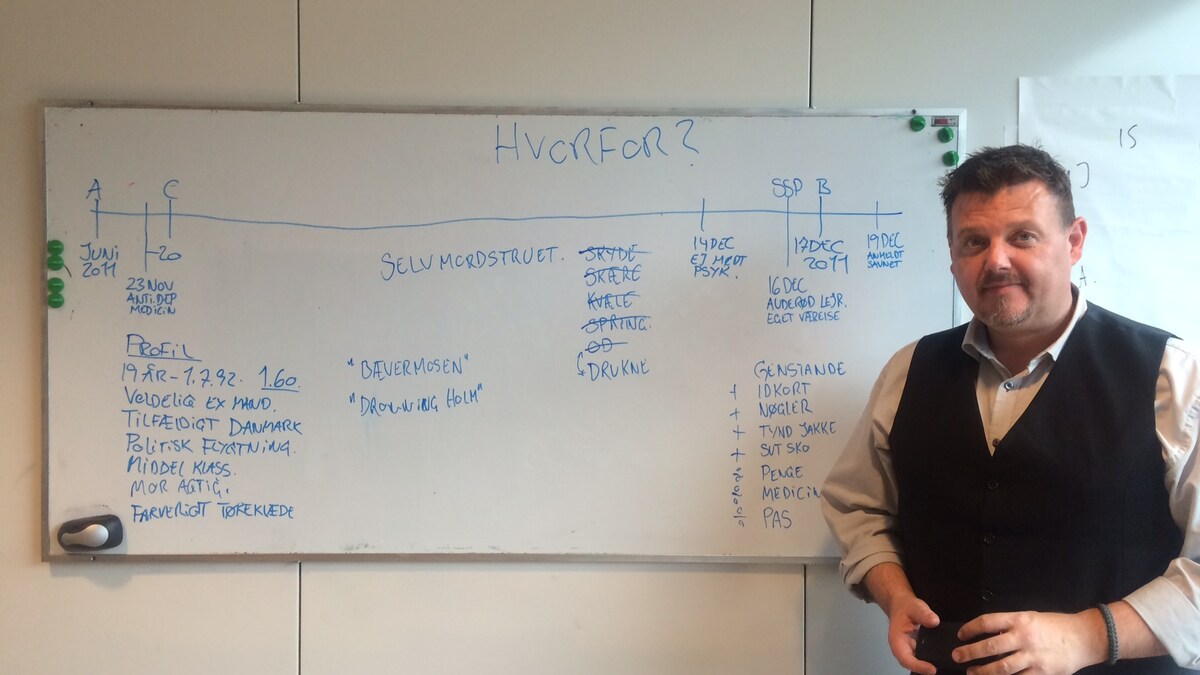 HVORFOR?
A
C
SSP B
JUNI
2011
-20
23 NOV
ANTI.DEP
MEDICIN
SELVMORDSTRUET.
SKYDE
SKÆRE
KVÆLE
SPRING.
OD
DRUKNE
14 DEC
EJ MØDT
PSYK.
17 DEC
2011
16 DEC
AUDERØD LEJR.
EGET VÆRELSE
19 DEC
ANMELDT
SAVNET
PROFIL
19 ÅR - 1.7.92. 1.60.
VOLDELIG EX MAND.
TILFÆLDIGT DANMARK
POLITISK FLYGTNING.
MIDDEL KLASS.
MOR AGTIG.
FARVERIGT TØRKLÆDE
"BÆVERMOSEN"
"DRONNING HOLM"
GENSTANDE
+ IDKORT
+ NØGLER
+ TYND JAKKE
+ SUT SKO
PENGE
MEDICIN
PAS
IS
A.